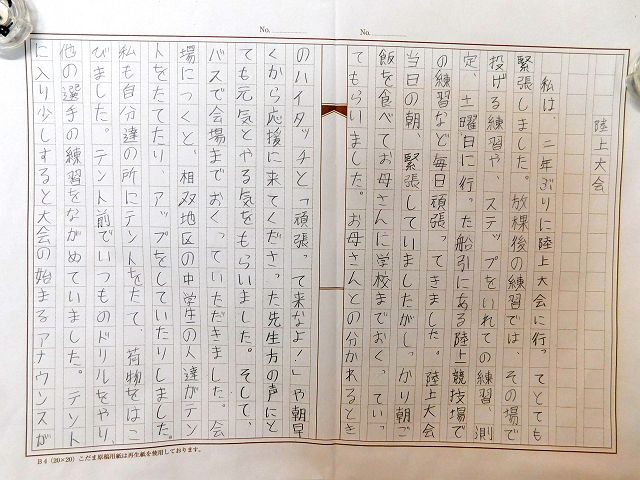 No.
No.
陸上大会
私は、二年ぶりに陸上大会に行ってとても
緊張しました。放課後の練習では、その場で
投げる練習や、ステップをいれての練習、測
定、土曜日に行った船引にある陸上競技場で
の練習など毎日頑張ってきました。陸上大会
当日の朝、緊張していましたがしっかり朝ご
飯を食べてお母さんに学校までおくってい
てもらいました。お母さんとの分かれるとき
のハイタッチと「頑張って来なよ!」や朝早
くから応援に来てくださった先生方の声にと
ても元気とやる気をもらいました。そして、
バスで会場までおくっていただきました。会
場につくと、相双地区の中学生の人達がテン
トをたてたり、アップをしていたりしました。
私も自分達の所にテントをたて、荷物をはこ
びました。テント前でいつものドリルをやり、
他の選手の練習をながめていました。テント
に入り少しすると大会の始まるアナウンスが
B4(20×20)こだま原稿用紙は再生紙を使用しております。